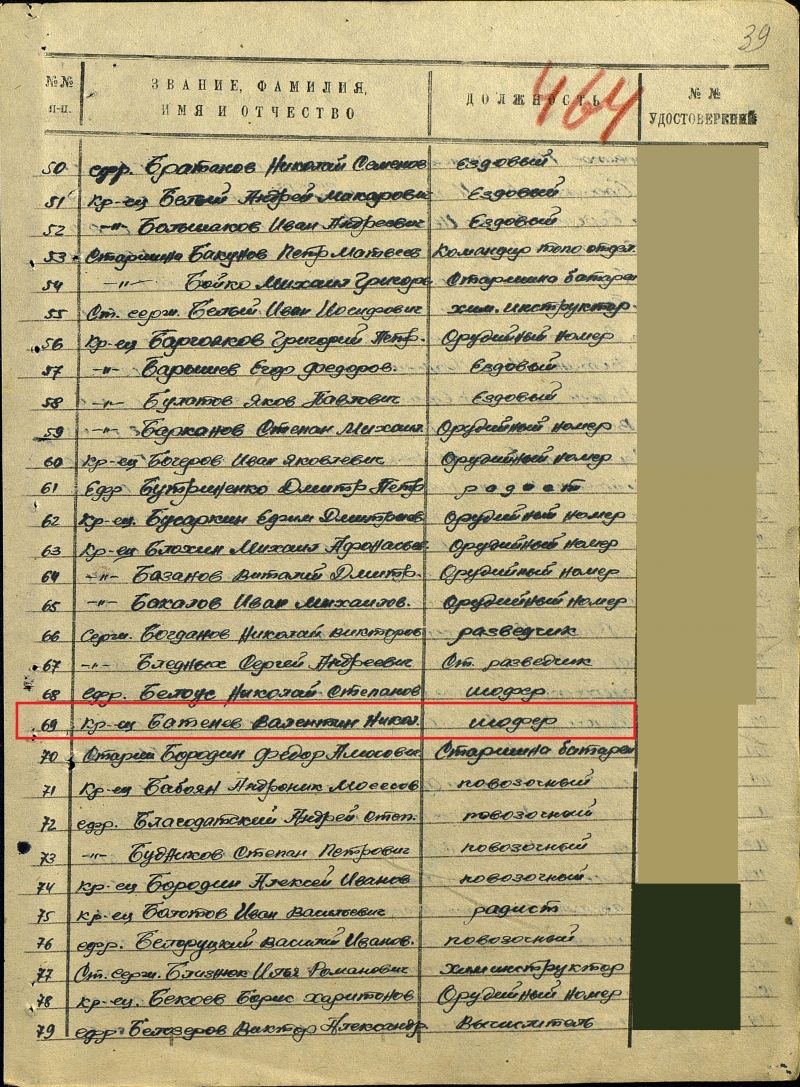 39
№№ п-п. ЗВАНИЕ, ФАМИЛИЯ, ИМЯ И ОТЧЕСТВО ДОЛЖНОСТЬ №№ УДОСТОВЕРЕНИЙ
464
50 ефр. Братанов Николай Семенов Ездовый
51 Кр-ец Белый Андрей Макарович Ездовый
52 -"- Большаков Иван Андреевич Ездовый
53 Старшина Бакунов Петр Матвеев Командир топо отдел.
54 -"- Бойко Михаил Григорь Старшина батареи
55 Ст. серж. Белый Иван Иосифович хим. инструктор
56 Кр-ец Григорий Петр. Орудийный номер
57 -"- Барышев Егор Федоров. Ездовый
58 -"- Булатов Яков Павлович Ездовый
59 -"- Барканов Степан Михаил. Орудийный номер
60 Кр-ец Бочеров Иван Яковлевич Орудийный номер
61 Ефр Бутриненко Дмитр Петр радист
62 Кр-ец. Ефим Дмитриев Орудийный номер
63 Кр-ец Блохин Михаил Афонасьев. Орудийный номер
64 -"- Базанов Виталий Дмитр. Орудийный номер
65 -"- Бакалов Иван Михайлов. Орудийный номер
66 Серж. Богданов Николай Викторов разведчик
67 -"- Бледных Сергей Андреевич Ст. разведчик
68 ефр. Белоус Николай Степанов шофер
69 Кр-ец Батенев Валентин Никол. шофер
70 Старш Бородин Фёдор Амосович Старшина батареи
71 Кр-ец Бабоян Андроник Мосесов повозочный
72 ефр. Благодатский Андрей Степ. повозочный
73 -"- Будников Степан Петрович повозочный
74 Кр-ец. Бородин Алексей Иванов повозочный
75 Кр-ец Иван Васильевич радист
76 ефр. Белоруцкий Василий Иванов. повозочный
77 Ст. серж. Близнюк Илья Романович химинструктор
78 Кр-ец. Бекоев Борис Харитонов Орудийный номер
79 ефр Белозеров Виктор Александр. Вычислитель